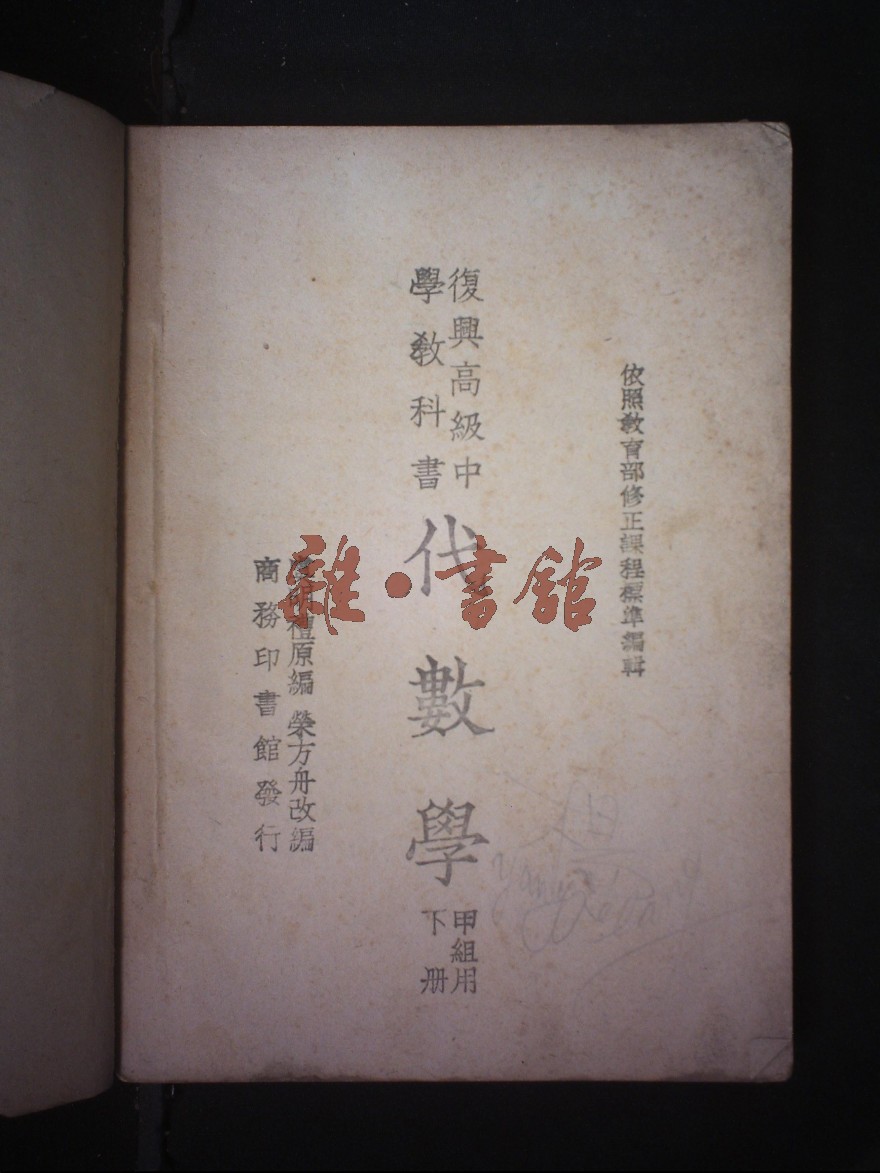 依照教育部修正課程標準編輯
復興高級中
學教科書
代數學
甲組用
下册
禮原編 榮方舟改編
商務印書館發行
雜·書館